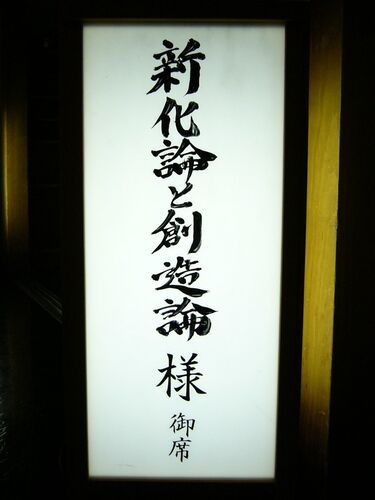 新化論と創造論様御席